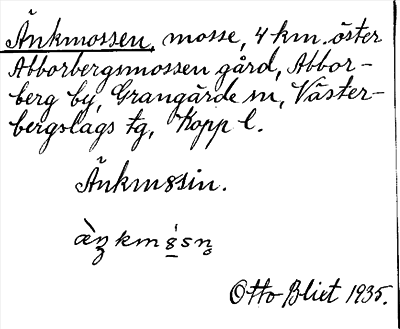 Änkmossen, mosse, 4 km. öster
Abborbergsmossen gård, Abbor-
berg by, Grangärde sn, Väster-
bergslags tg, Kopp l.
Änkm8sin.
Otto Blixt 1935.